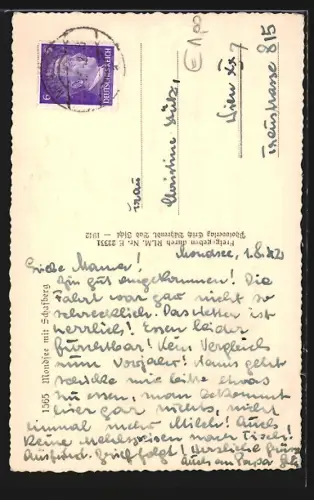 DEUTSCHES REICH
6
€ 1,00
Frau
Christine
Wien XX 7
815
1565 Mondsee mit Schafberg
Freigegeben durch RLM. Nr. E 22331
Photoverlag Bad Ischl — 1942
Mondsee, 1.8.42
Liebe Mama!
Bin gut angekommen! Die
Fahrt war gar nicht so
schrecklich. Das Wetter ist
herrlich! Essen leider
furchtbar! Kein Vergleich
zum Vorjahr! Wenn geht
schicke mir bitte etwas
zu essen, man bekommt
hier gar nichts, nicht
einmal mehr Milch! Auch
keine Mehlspeisen nach Tisch!
Ausführl. Brief folgt! Herzliche
Auch an Papa